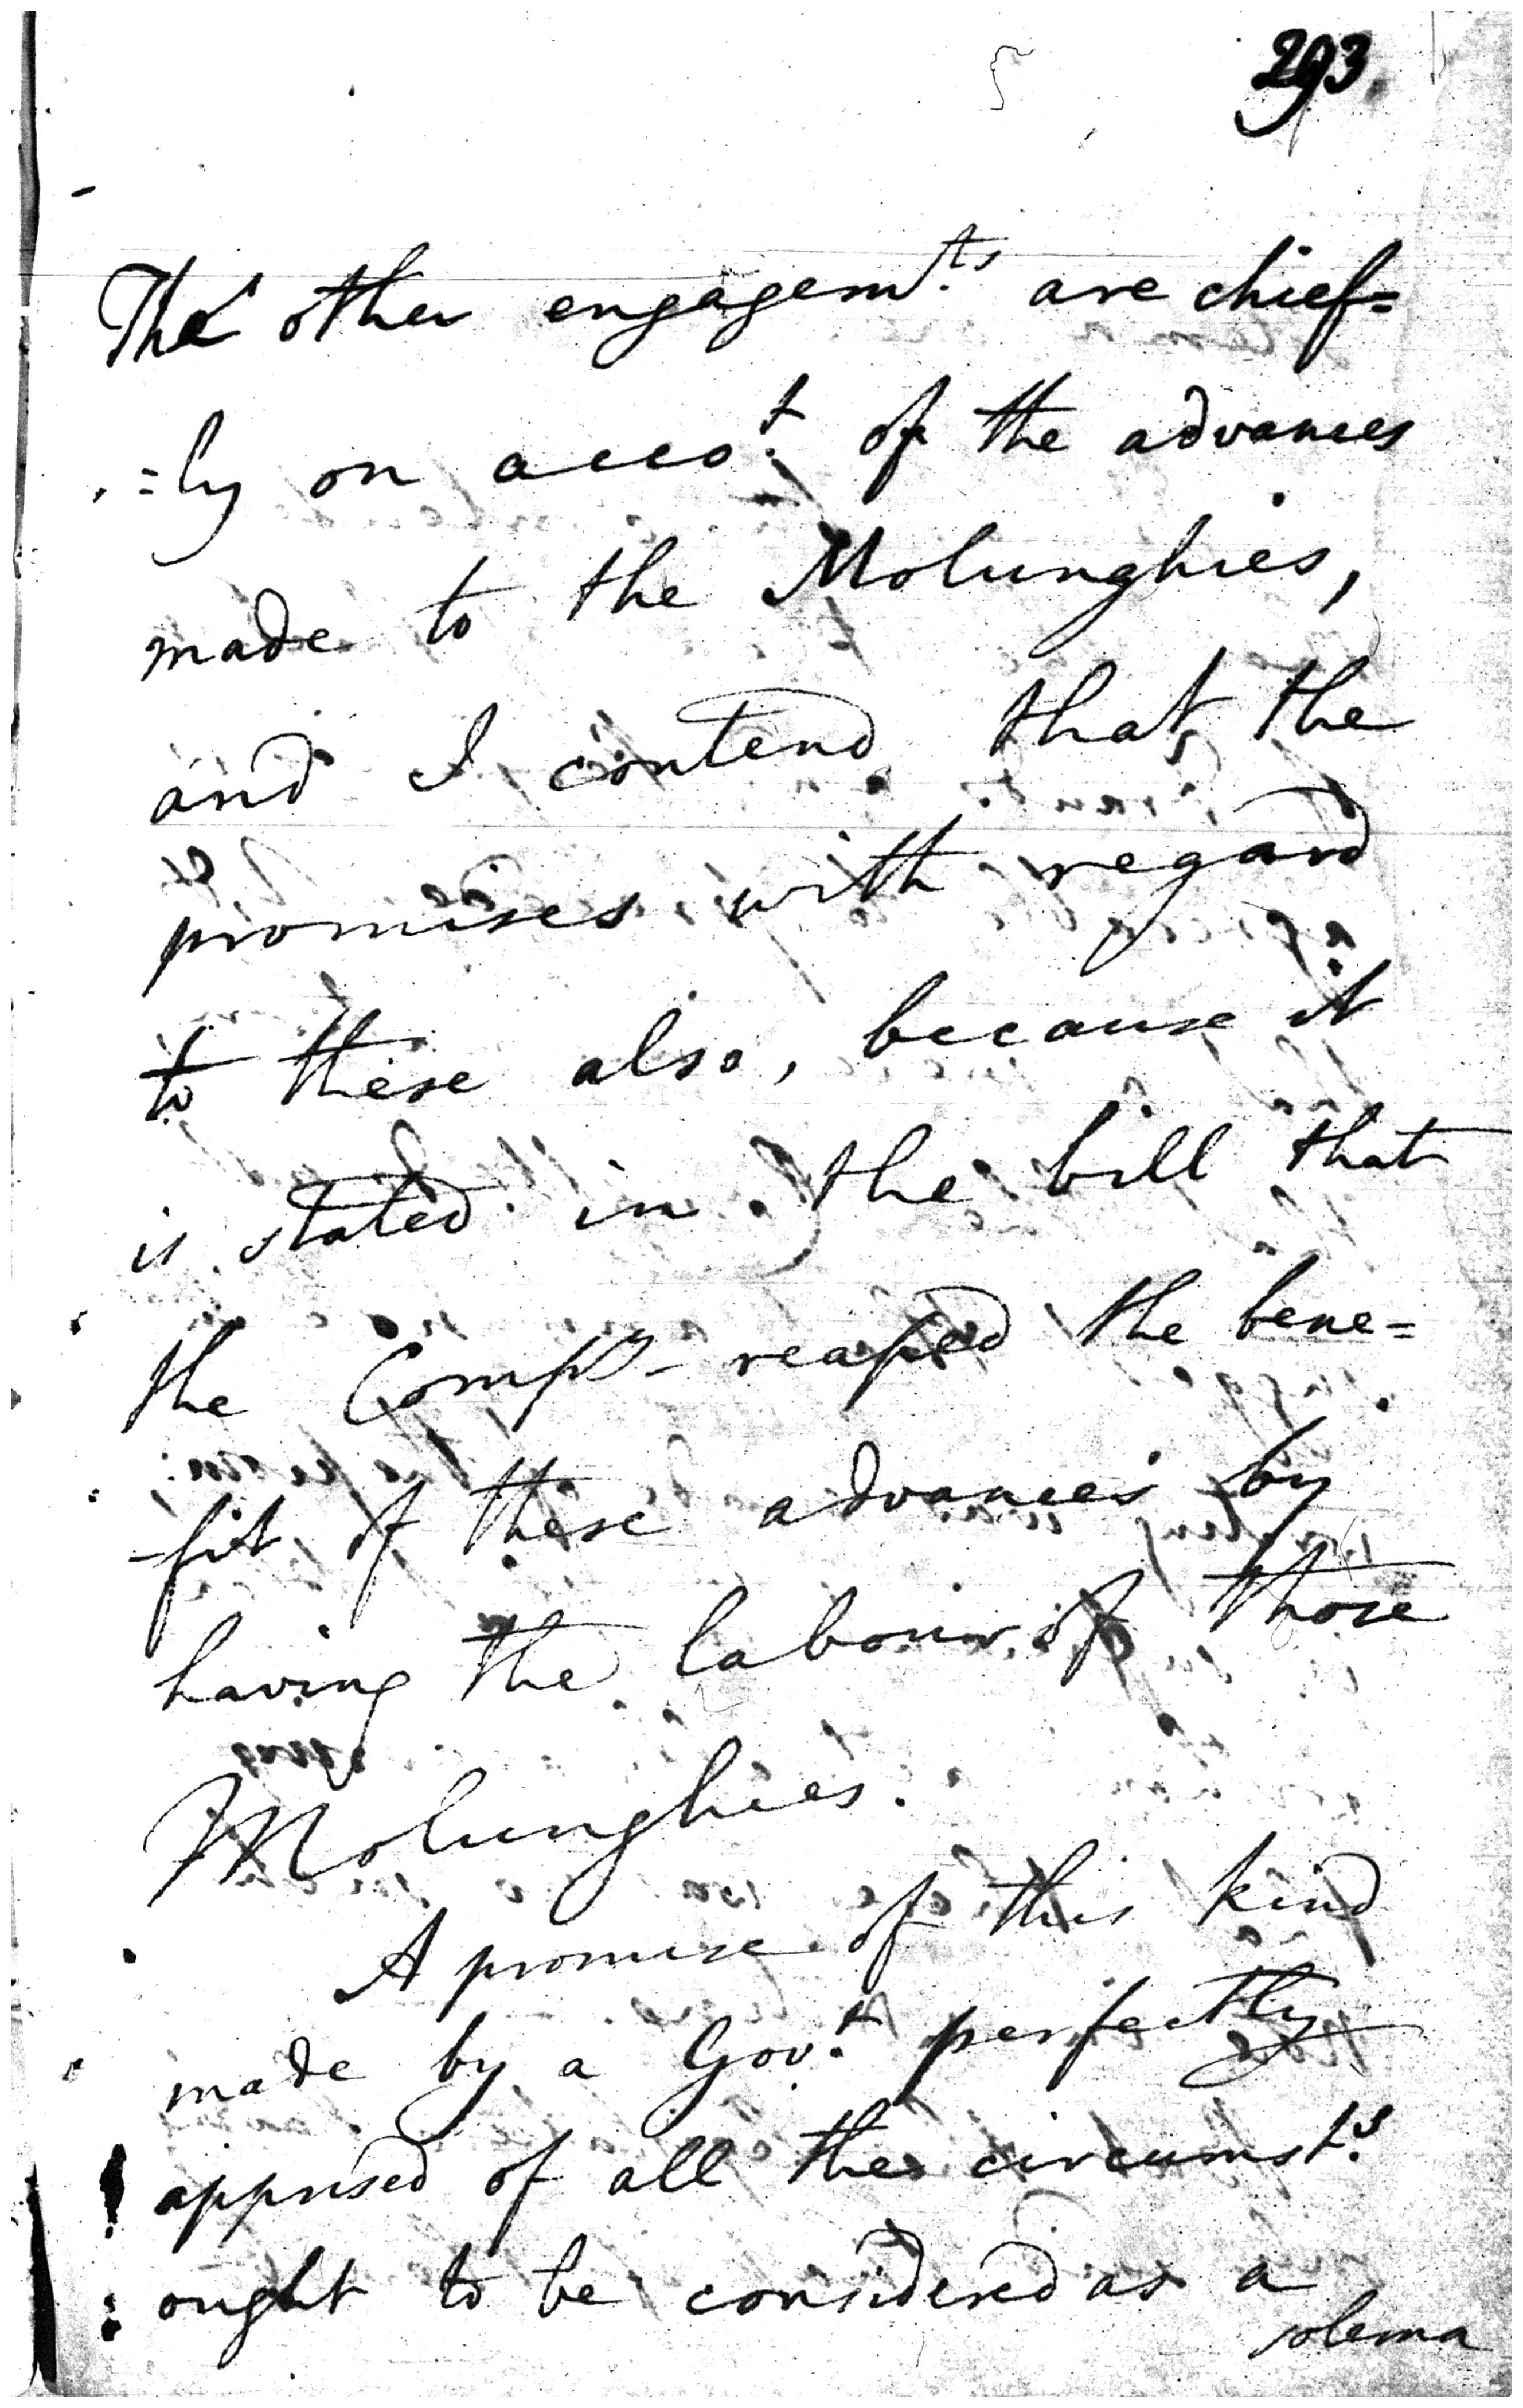 293
The other engagem.ts are chief=
=ly on acco.t of the advances
made to the Molunghies,
and I contend that the
promises with regard
to these also, because it
is stated in the bill that
the Compy reaped the bene=
-fit of these advances by
having the labour of those
Molunghies.
A promise of this kind
made by a Gov.t perfectly
apprised of all the circumst.s
ought to be considered as a
solemn